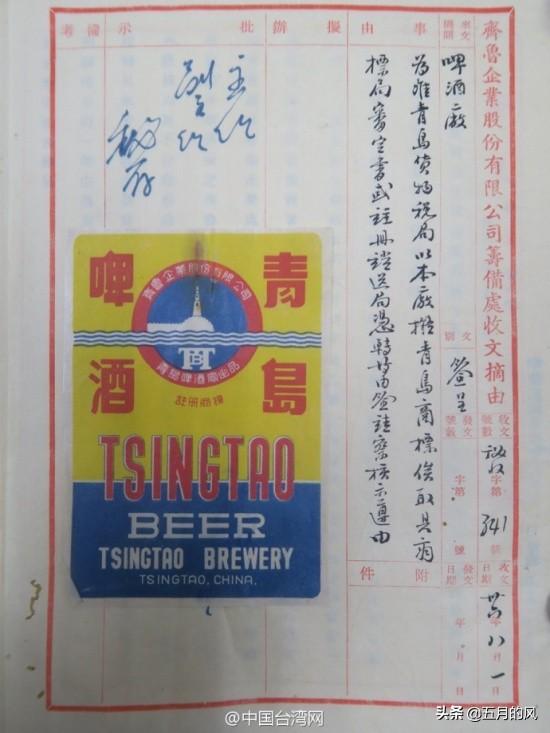 齊魯企業股份有限公司籌備處收文摘由
收文號數 字第341號
收文日期 年八月一日
來文機關 啤酒廠
文別 簽呈
發文號數 字第 號
發文日期 年 月 日
事由
為准青島貨物稅局以本廠 青島商標俟取具商
標局審定書或註冊證送局憑轉等由簽 察核示遵由
附件
擬辦
批示
備考
青島
啤酒
齊魯企業股份有限公司
TB
青島啤酒廠出品
註冊商標
TSINGTAO
BEER
TSINGTAO BREWERY
TSINGTAO, CHINA.
@中国台湾网
头条 @五月的风